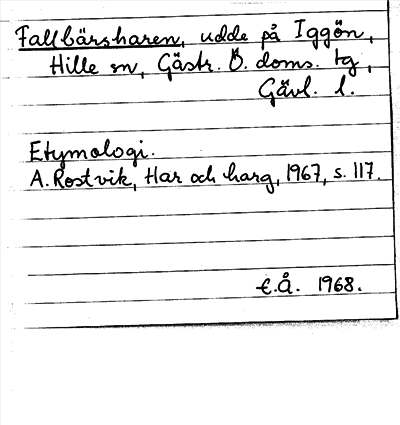 Fallbärsharen, udde på Iggön,
Hille sn, Gästr. Ö. doms. tg,
Gävl. l.
Etymologi.
A. Rostvik, Har och harg, 1967, s. 117.
E.Å. 1968.